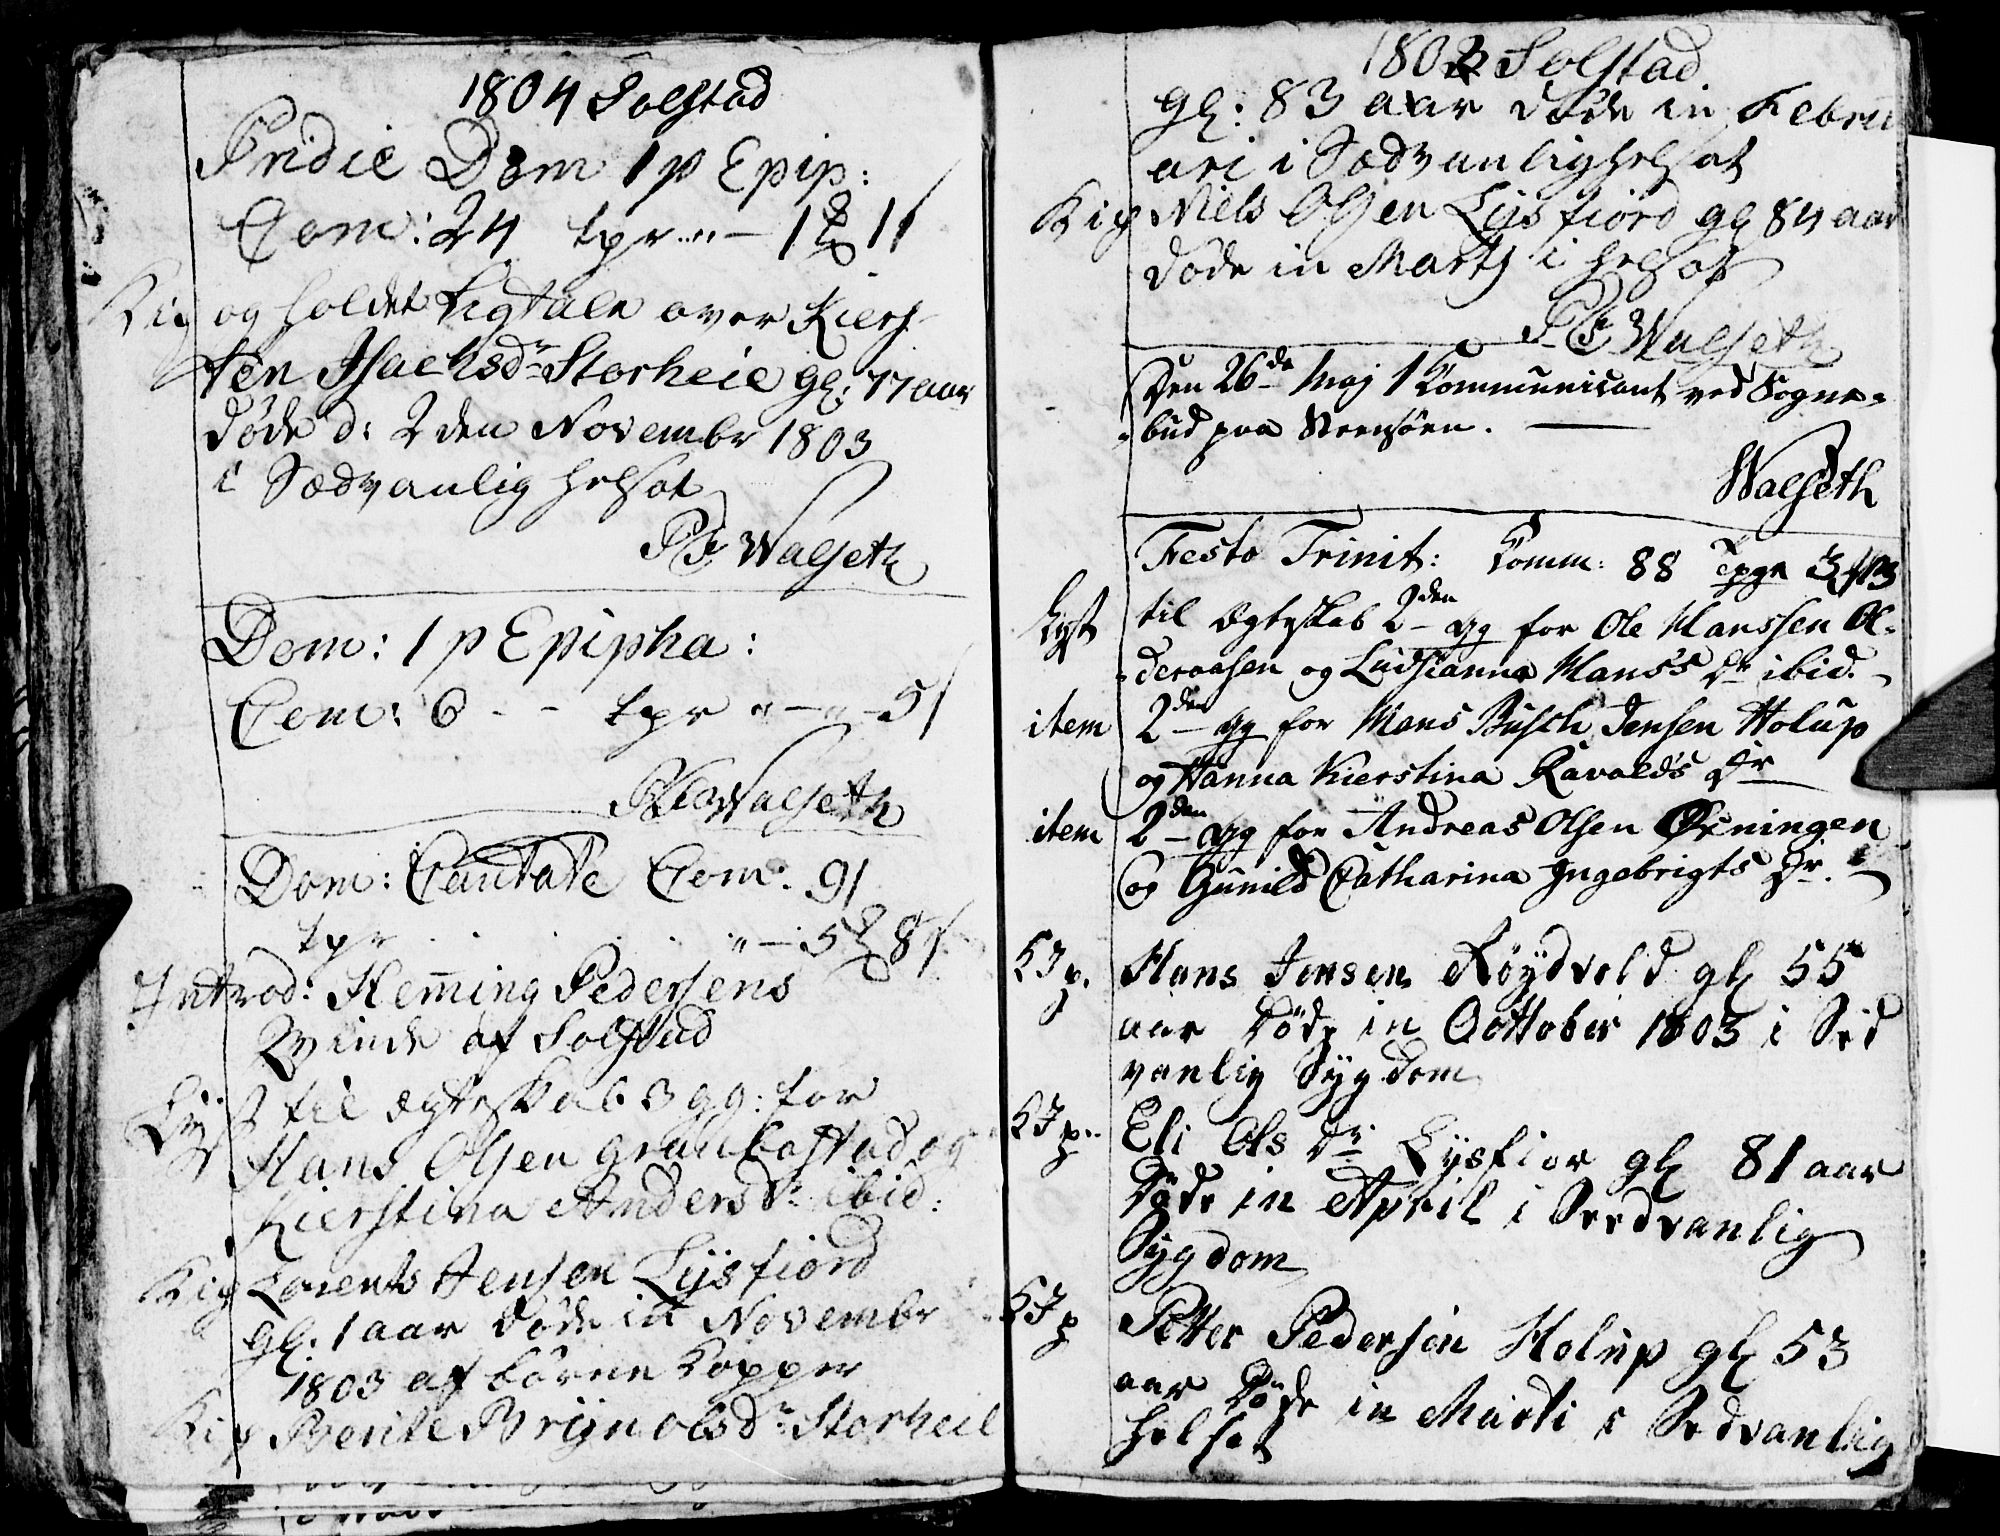 1804 Solstad
Pridie Dom 1 p Epip:
Com: 24 tpr
Kig og holdet Ligtale over Kiers-
ten Isachsdr Storheie gl: 77 aar
døde d: 2den Novembr 1803
i Sædvanlig helsot
P F Walseth
Dom: 1 p Epipha:
Com: 6 - - tpr " — " — 5
Walseth
Dom: Cantate Com. 91
tpr
Introd: Hem̄ing Pedersens
Qvinde af Solstad
Lyst til ægteskab 3 gg: for
Hans Olsen Graubostad og
Kierstina Andersdr ibid:
Kig Lorents Jensen Lysfiord
gl: 1 aar døde in Novembr
1803 af børne Kopper
Kig Berite Brynolsdr Storheil
Solstad
gl: 83 aar døde in Febru
ari i Sædvanlig helsot
Kig Niels Olsen Lysfiord gl 84 aar
døde in Martj i helsot
P F Walseth
Den 26de Maj 1 Kommunicant ved Sogne-
-bud paa
Walseth
Festo Trinit: Komm: 88
Lyst til Ægteskab 2den Gg for Ole Hanssen Ol-
-deraasen og Ludsianna Hans's Dr ibid.
item 2den Gg for Hans Busch Jensen Holup
og Hanna Kierstina Ravald's Dr
item 2den Gg for Andreas Olsen Øxningen
og Gunild Catharina Ingebrigts Dr.
KJp. Hans Jensen Røydvold gl 55
aar Døde in Octtober 1803 i Sæd
vanlig Sygdom
KJp. Eli Ols Dr Lysfior gl 81 aar
Døde in April i Sædvanlig
Sygdom
KJp Petter Pedersen Holup gl 53
aar Døde in Marti i Sædvanlig
helsot